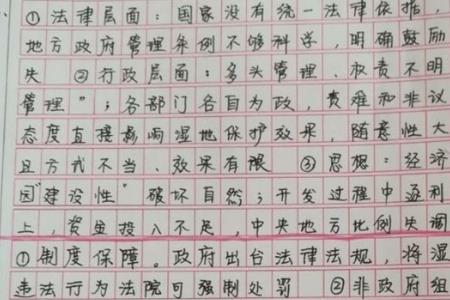 ①法律层面：国家没有统一法律依据，
地方政府管理条例不够科学，明确鼓励
失 ②行政层面：多头管理、权责不明
管理"；各部门各自为政，责难和非议
态度直接影响湿地保护效果，随意性大
且方式不当、效果有限 ③思想：经济
因"建设性"破坏自然；开发过程中逐利
上，资里投入不足，中央地方比例失调
①制度保障。政府出台法律法规，将湿
违法行为法院可强制处罚 ②非政府组